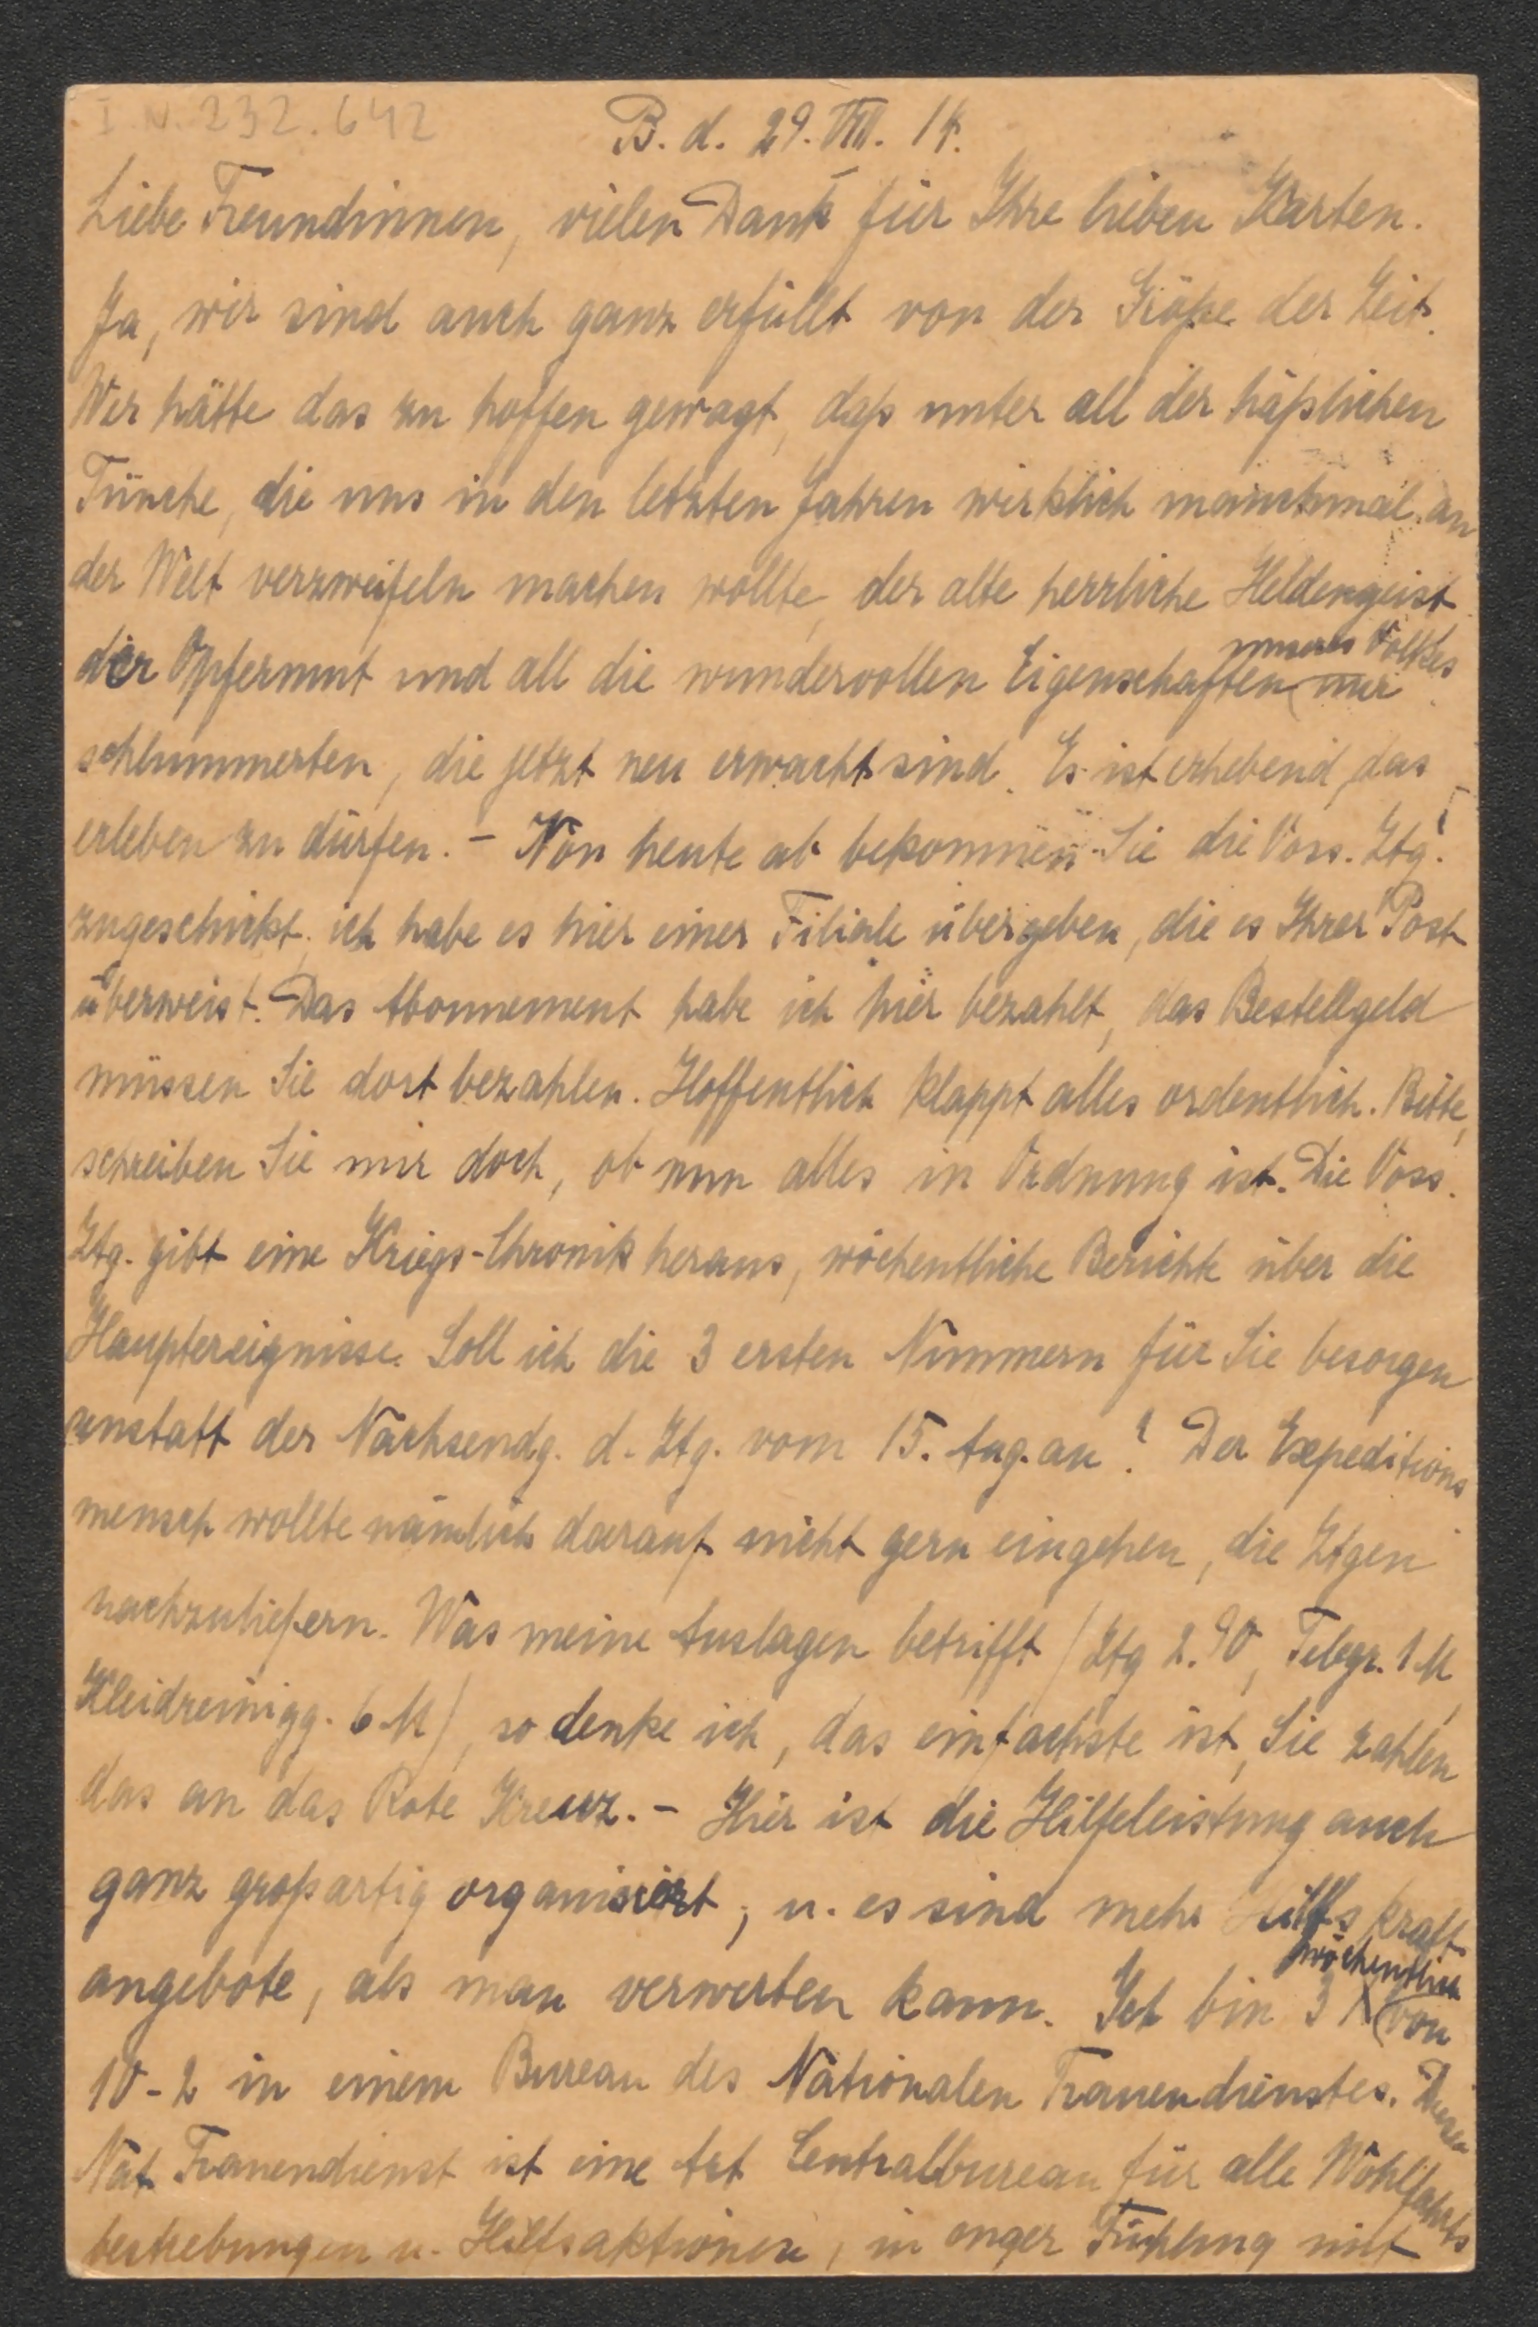 I.N. 232.642
B. d. 29. VIII. 14.
Liebe Freundinnen, vielen Dank für Ihre lieben Karten.
Ja, wir sind auch ganz erfüllt von der Größe der Zeit.
Wer hätte das zu hoffen gewagt, daß unter all der häßlichen
Tünche, die uns in den letzten Jahren wirklich manchmal an
der Welt verzweifeln machen wollte, der alte herrliche Heldengeist
der Opfermut und all die wundervollen Eigenschaften unseres Volkes nur
schlummerten, die jetzt neu erwacht sind. Es ist erhebend, das
erleben zu dürfen. – Von heute ab bekommen Sie die Voss. Ztg.
zugeschickt, ich habe es hier einer Filiale übergeben, die es Ihrer Post
überweist. Das Abonnement habe ich hier bezahlt, das Bestellgeld
müssen Sie dort bezahlen. Hoffentlich klappt alles ordentlich. Bitte,
schreiben Sie mir doch, ob nun alles in Ordnung ist. Die Voss.
Ztg. gibt eine Kriegs-Chronik heraus, wöchentliche Berichte über die
Hauptereignisse. Soll ich die 3 ersten Nummern für Sie besorgen
anstatt der Nachsendg. d. Ztg. vom 15. Aug. an? Der Expeditions
mensch wollte nämlich darauf nicht gern eingehen, die Ztgen
nachzuliefern. Was meine Auslagen betrifft (Ztg 2.90, Telegr. 1 M,
Kleidreinigg. 6 M), so denke ich, das einfachste ist, Sie zahlen
das an das Rote Kreuz. – Hier ist die Hilfeleistung auch
ganz großartig organisiert, u. es sind mehr Hilfskraft
angebote, als man verwerten kann. Ich bin 3 x wöchentlich von
10-2 in einem Bureau des Nationalen Frauendienstes. Dieser
Nat. Frauendienst ist eine Art Centralbureau für alle Wohlfahrts
bestrebungen u. Hilfsaktionen, in enger Fühlung mit